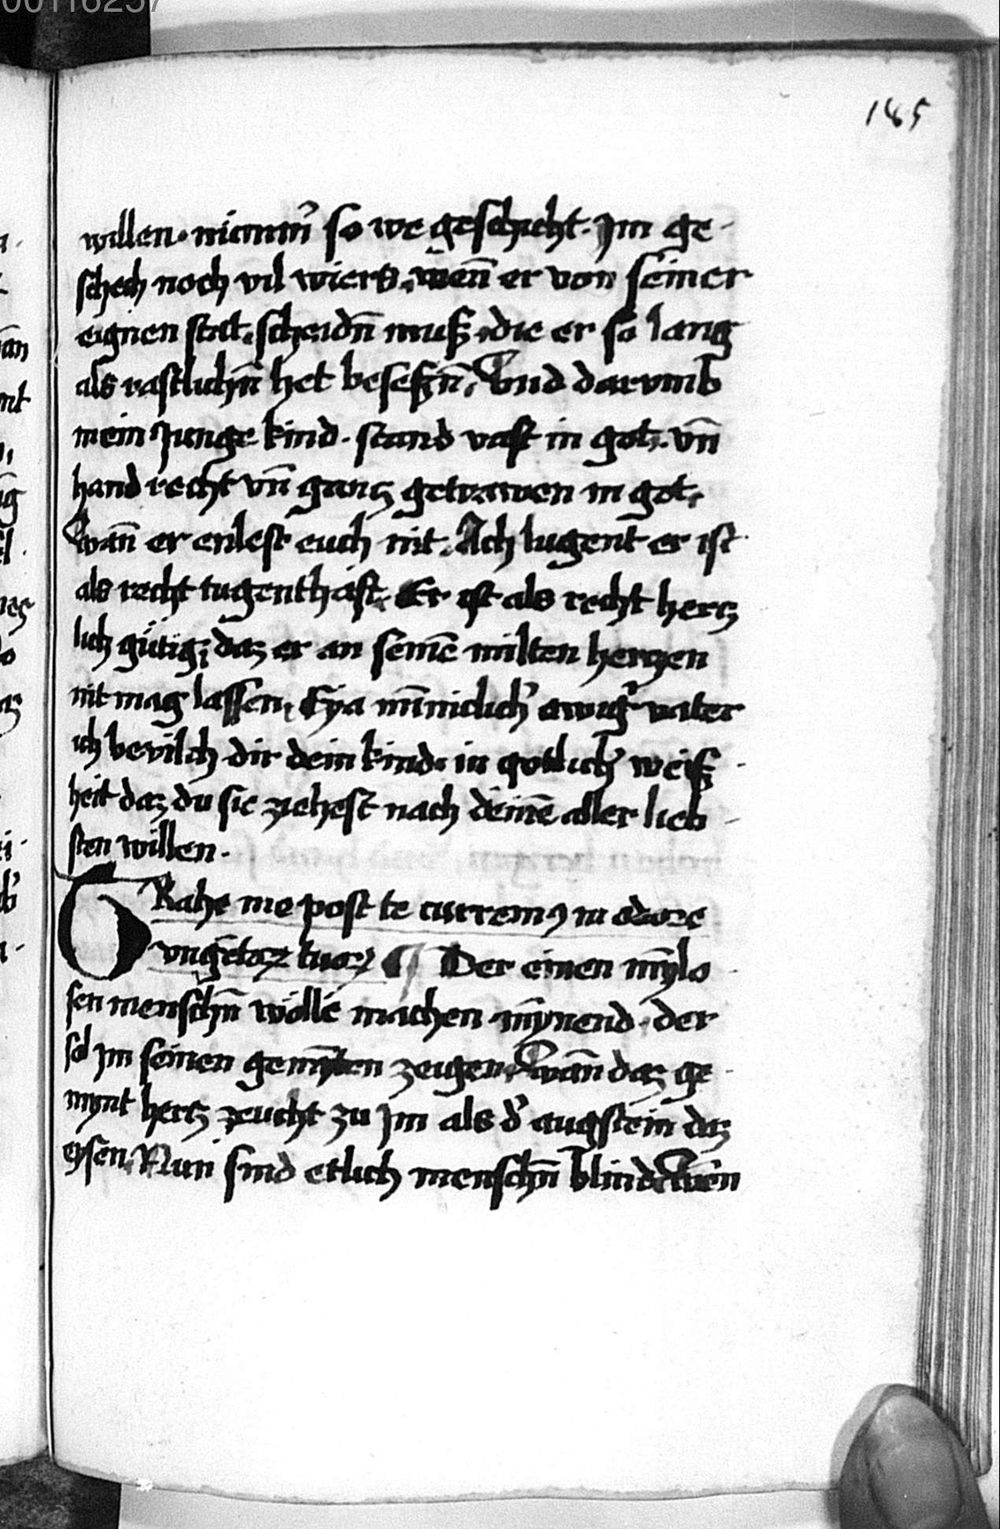 00116257
185
willen · niamm̄ so we geschicht · Jm ge
schech noch vil wierß · wen̄ er von seiner
eignen stat · scheidn̄ muß · die er so lang
als rastlichn̄ het beseßn̄ · Vnd darvmb
mein Junge kind · stand vast in got · vn̄
hand recht vn̄ gancz getrawen in got ·
wan̄ er enlest euch nit · Ach lugent er ist
als recht tugenthaft · Er ist als recht hercz
lich gütig · daz er an seinē milten herczen
nit mag lassen · Eya mīniclich' ewig' vater
ich bevilch dir dein kind · in gotlich' weiß
heit daz du sie ziehest nach deinē aller lieb
sten willen ·
TRahe me post te curremꝰ in odore
vngētoꝝ tuoꝝ ¶ Der einen mȳlo
sen menschn̄ wölle machen mȳnend · der
sol jm seinen gemȳten zeugen · wan̄ daz ge
mynt hercz zeucht zu Jm als d' augstein daz
eysen · Nun sind etlich menschn̄ blind · wen̄